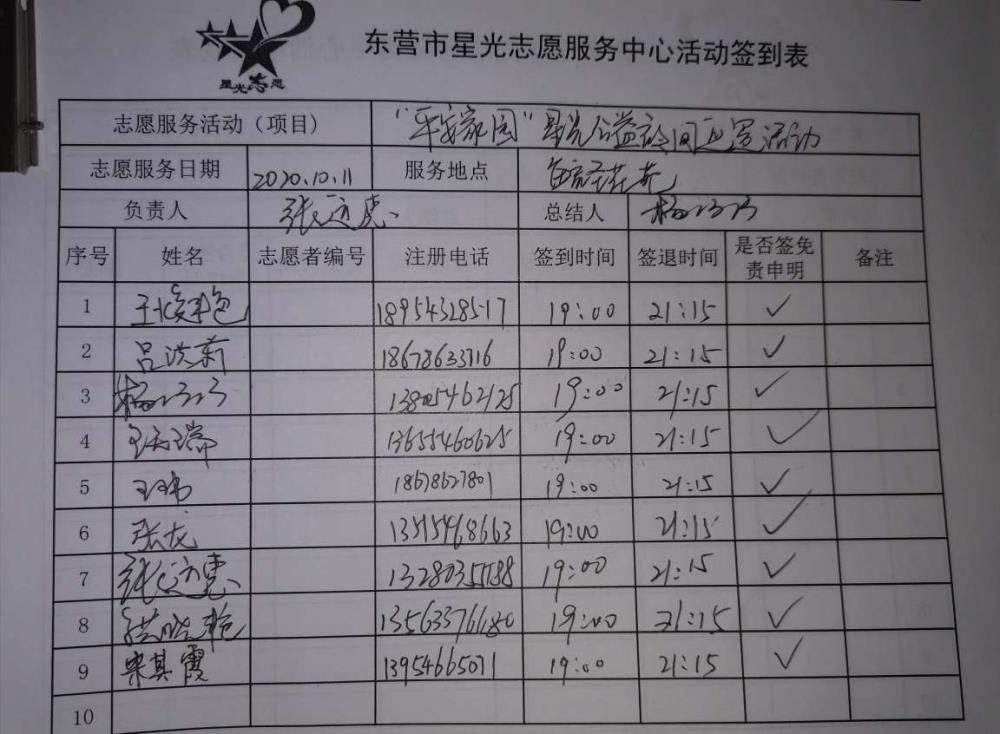 星光志愿
东营市星光志愿服务中心活动签到表
志愿服务活动（项目） “平安家园”星光公益夜间巡逻活动
志愿服务日期 2020.10.11 服务地点
负责人 总结人
序号 姓名 志愿者编号 注册电话 签到时间 签退时间 是否签免责申明 备注
1 18954328517 19:00 21:15 ✓
2 吕洪新 18678633716 19:00 21:15 ✓
3 13805462125 19:00 21:15 ✓
4 13655460625 19:00 21:15 ✓
5 王玮 18678627801 19:00 21:15 ✓
6 张龙 13515468663 19:00 21:15 ✓
7 19:00 21:15 ✓
8 19:00 21:15 ✓
9 宋其霞 13954665071 19:00 21:15 ✓
10